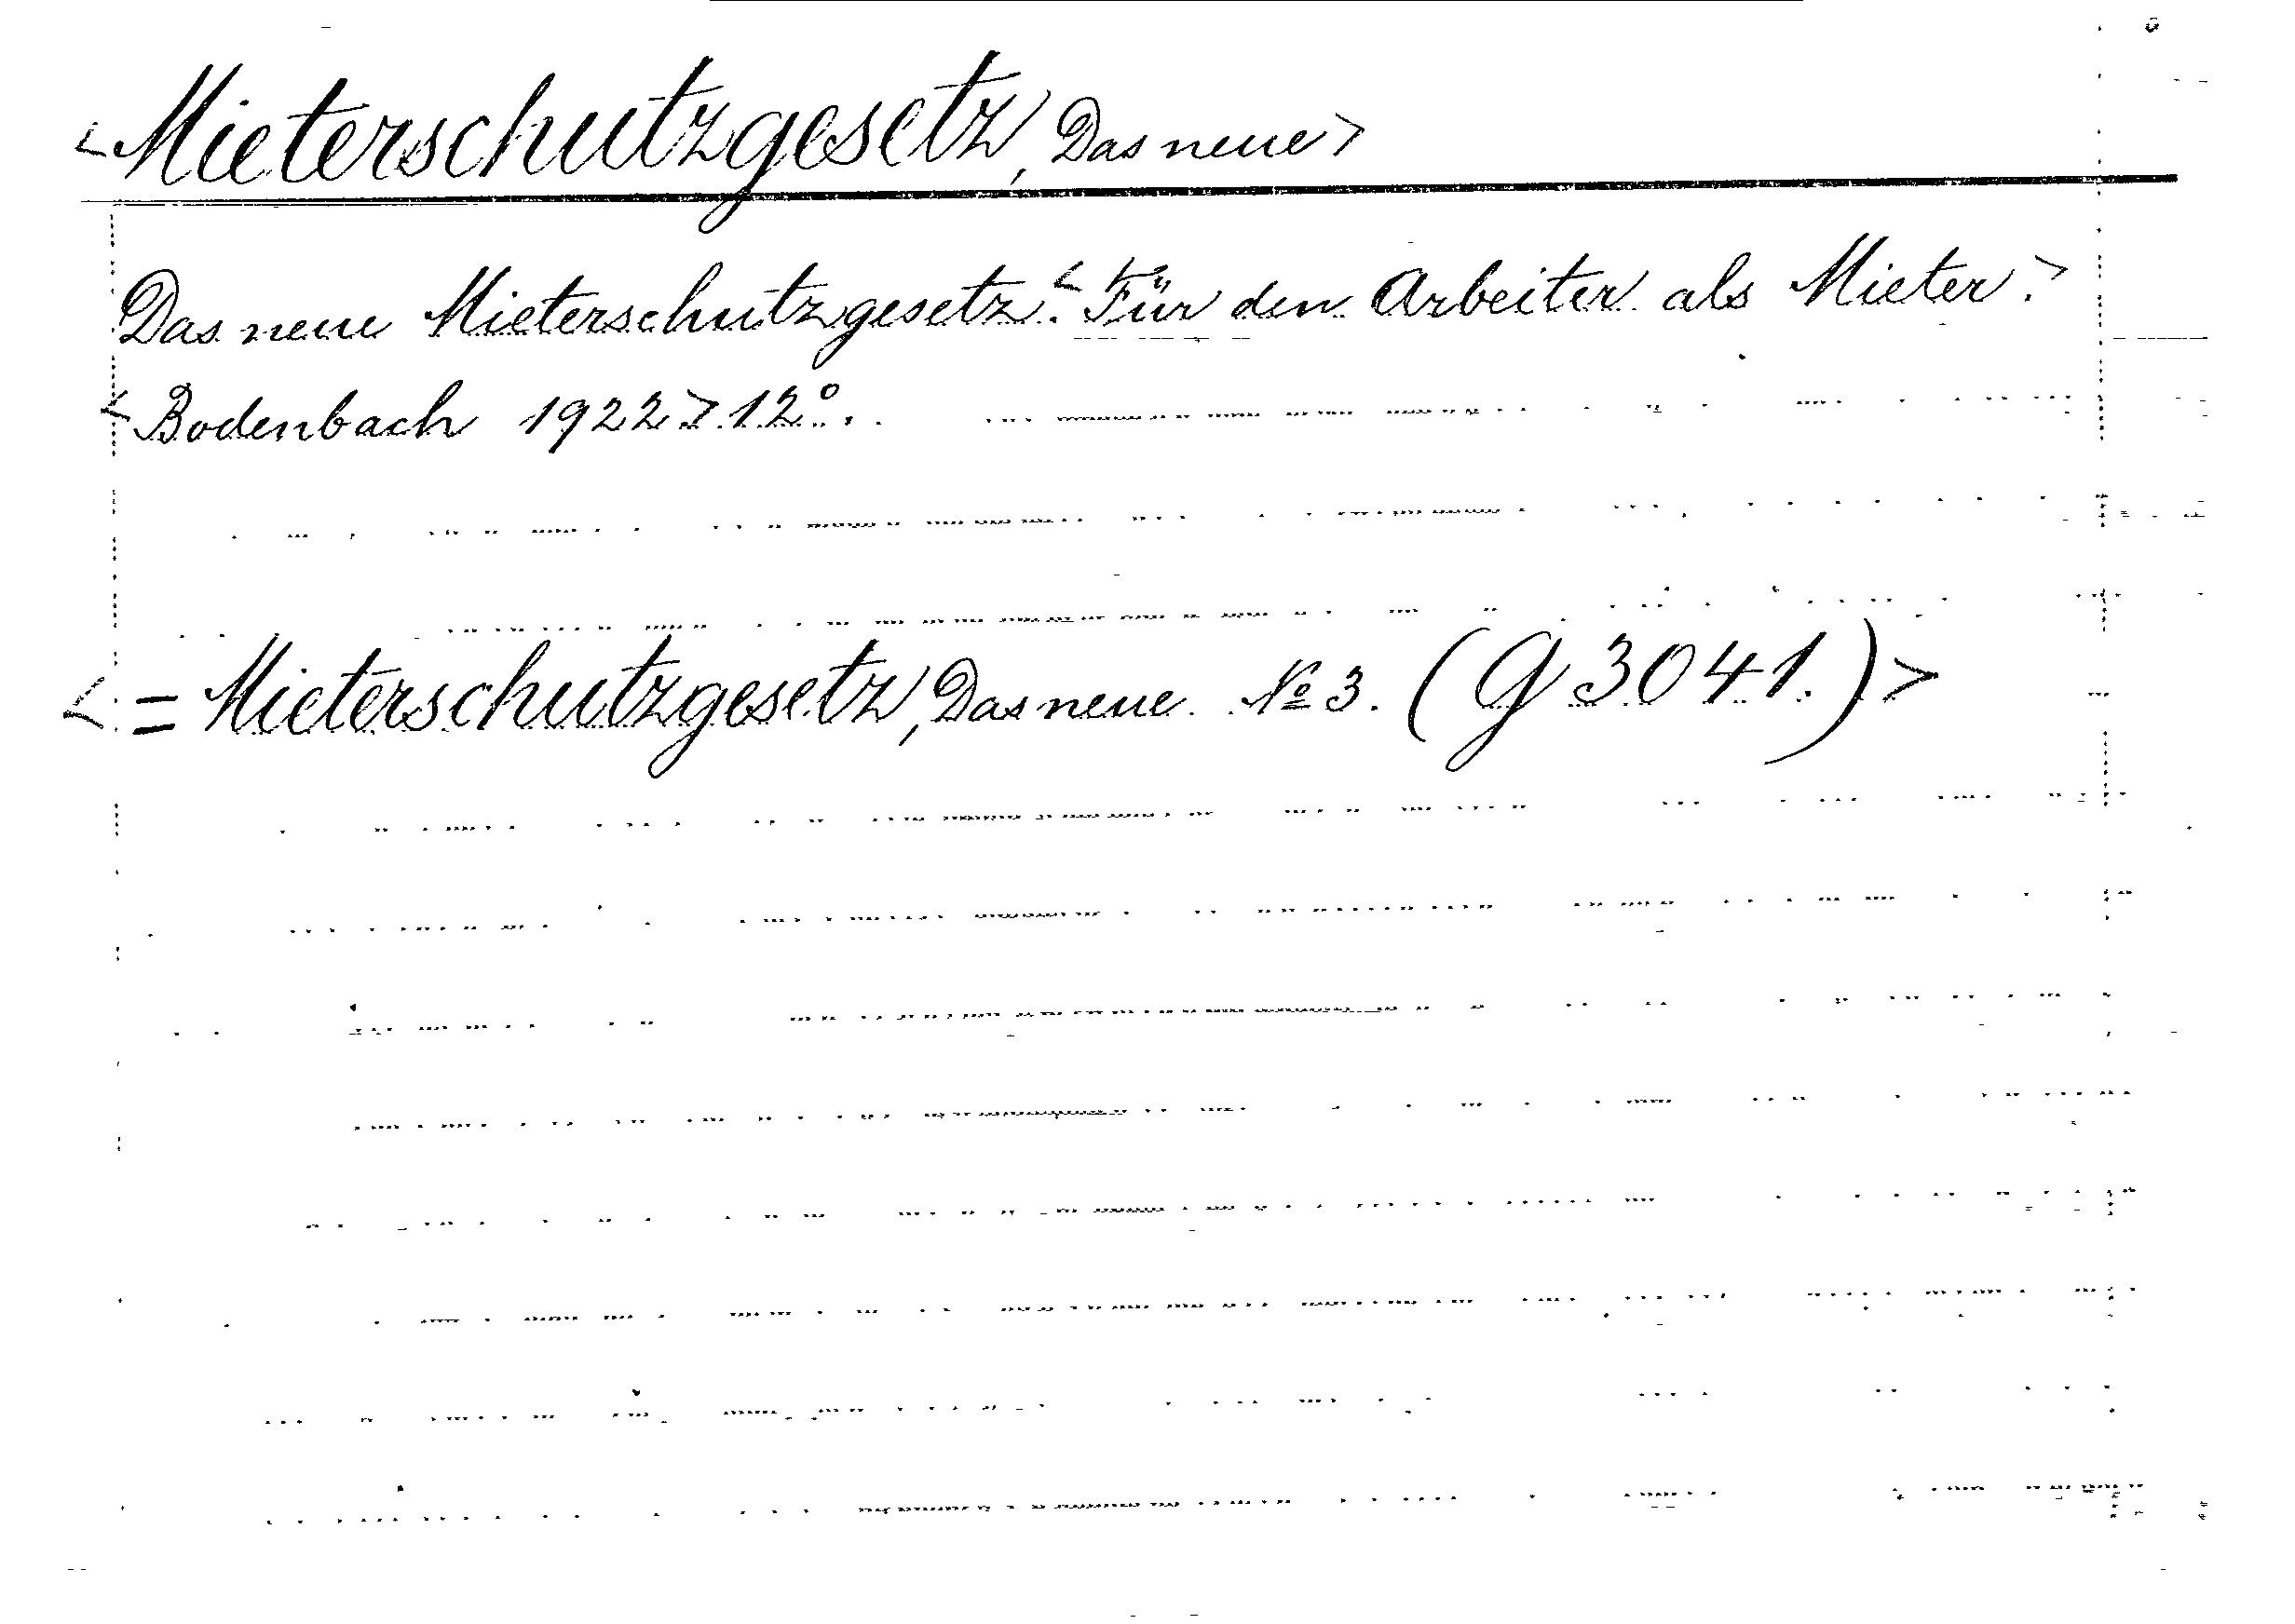 <Mieterschutzgesetz, Das neue>
Das neue Mieterschutzgesetz.<Für den Arbeiter als Mieter.>
<Bodenbach 1922> 12°.
<= Mieterschutzgesetz, Das neue. № 3. (G 3041.)>